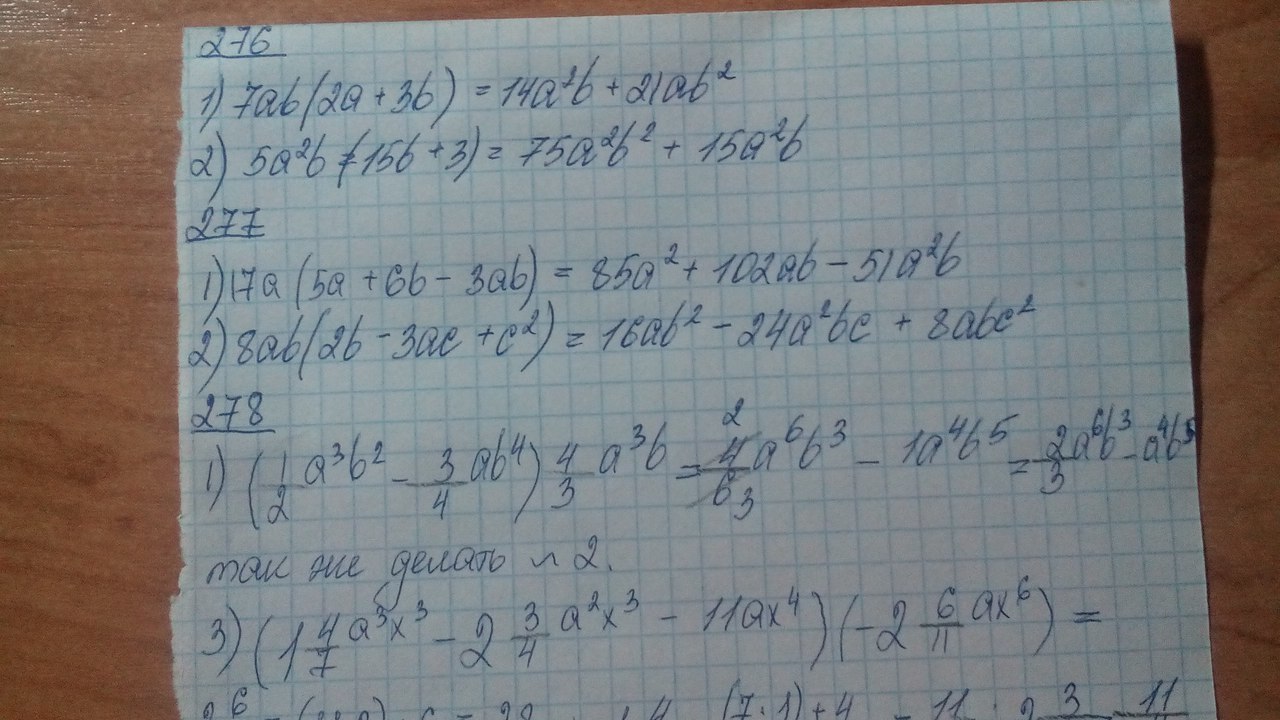 276
1) 7ab(2a + 3b) = 14a²b + 21ab²
2) 5a²b (15b + 3) = 75a²b² + 15a²b
277
1) 17a (5a + 6b - 3ab) = 85a² + 102ab - 51a²b
2) 8ab(2b - 3ac + c²) = 16ab² - 24a²bc + 8abc²
278
1) (1/2 a³b² - 3/4 ab⁴) 4/3 a³b = 4/6 2/3 a⁶b³ - 1a⁴b⁵ = 2/3 a⁶b³ - a⁴b⁵
так же делать и 2.
3) (1 4/7 a³x³ - 2 3/4 a²x³ - 11ax⁴) (-2 6/11 ax⁶) =
(7·1)+4 = 11